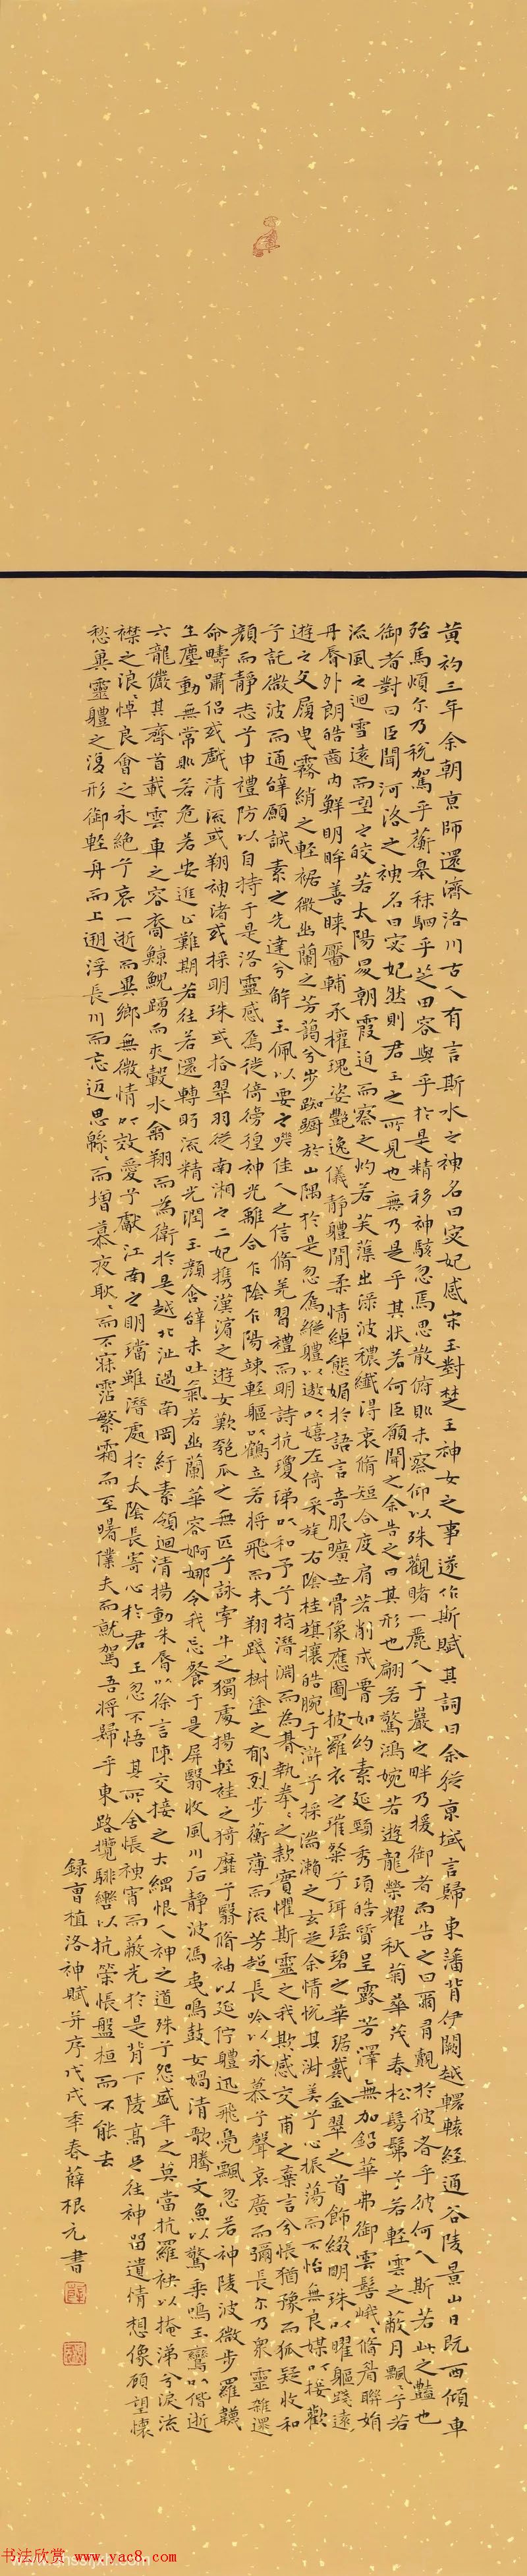 黄初三年余朝京師還濟洛川古人有言斯水之神名曰宓妃感宋玉對楚王神女之事遂作斯賦其詞曰余從京域言歸東藩背伊闕越轘轅經通谷陵景山日既西傾車
殆馬煩尔乃税駕乎蘅皋秣駟乎芝田容與乎於是精移神駭忽焉思散俯則未察仰以殊觀睹一麗人于巖之畔乃援御者而告之曰爾有覿於彼者乎彼何人斯若此之豔也
御者對曰臣聞河洛之神名曰宓妃然則君王之所見也無乃是乎其狀若何臣願聞之余告之曰其形也翩若驚鴻婉若遊龍榮耀秋菊華茂春松髣髴兮若輕雲之蔽月飄飄兮若
流風之迴雪遠而望之皎若太陽昇朝霞迫而察之灼若芙蕖出淥波穠纖得衷脩短合度肩若削成腰如約素延頸秀項皓質呈露芳澤無加鉛華弗御雲髻峨峨脩眉聯娟
丹脣外朗皓齒内鮮明眸善睞靨輔承權瑰姿艷逸儀靜體閒柔情綽態媚於語言奇服曠世骨像應圖披羅衣之璀粲兮珥瑶碧之華琚戴金翠之首飾綴明珠以曜軀踐遠
遊之文履曳霧綃之輕裾微幽蘭之芳藹兮步踟躕於山隅於是忽焉縱體以遨以嬉左倚采旄右陰桂旗攘皓腕于滸兮採湍瀨之玄芝余情悦其淑美兮心振蕩而不怡無良媒以接歡
兮託微波而通辭願誠素之先達兮解玉佩以要之嗟佳人之信脩羌習禮而明詩抗瓊珶以和予兮指潛淵而為朞執拳拳之款實懼斯靈之我欺感交甫之棄言兮悵猶豫而狐疑收和
顏而靜志兮申禮防以自持于是洛靈感焉徙倚徬徨神光離合乍陰乍陽竦輕軀以鶴立若將飛而未翔踐椒塗之郁烈步蘅薄而流芳超長吟以永慕兮聲哀厲而彌長尔乃衆靈雜遝
命疇嘯侶或戲清流或翔神渚或採明珠或拾翠羽從南湘之二妃攜漢濱之遊女歎匏瓜之無匹兮詠牽牛之獨處揚輕袿之猗靡兮翳脩袖以延佇體迅飛鳧飄忽若神陵波微步羅韈
生塵動無常則若危若安進止難期若往若還轉眄流精光潤玉顏含辭未吐氣若幽蘭華容婀娜令我忘餐于是屏翳收風川后靜波馮夷鳴鼓女媧清歌騰文魚以驚乘鳴玉鸞以偕逝
六龍儼其齊首載雲車之容裔鯨鯢踴而夾轂水禽翔而為衛於是越北沚過南岡紆素領迴清揚動朱脣以徐言陳交接之大綱恨人神之道殊兮怨盛年之莫當抗羅袂以掩涕兮淚流
襟之浪浪悼良會之永絶兮哀一逝而異鄉無微情以效愛兮獻江南之明璫雖潛處於太陰長寄心於君王忽不悟其所舍悵神宵而蔽光於是背下陵高足往神留遺情想像顧望懷
愁冀靈體之復形御輕舟而上遡浮長川而忘返思緜緜而增慕夜耿耿而不寐霑繁霜而至曙僕夫而就駕吾將歸乎東路攬騑轡以抗策悵盤桓而不能去
録曹植洛神賦并序戊戌季春薛根元書
书法欣赏 www.yac8.com